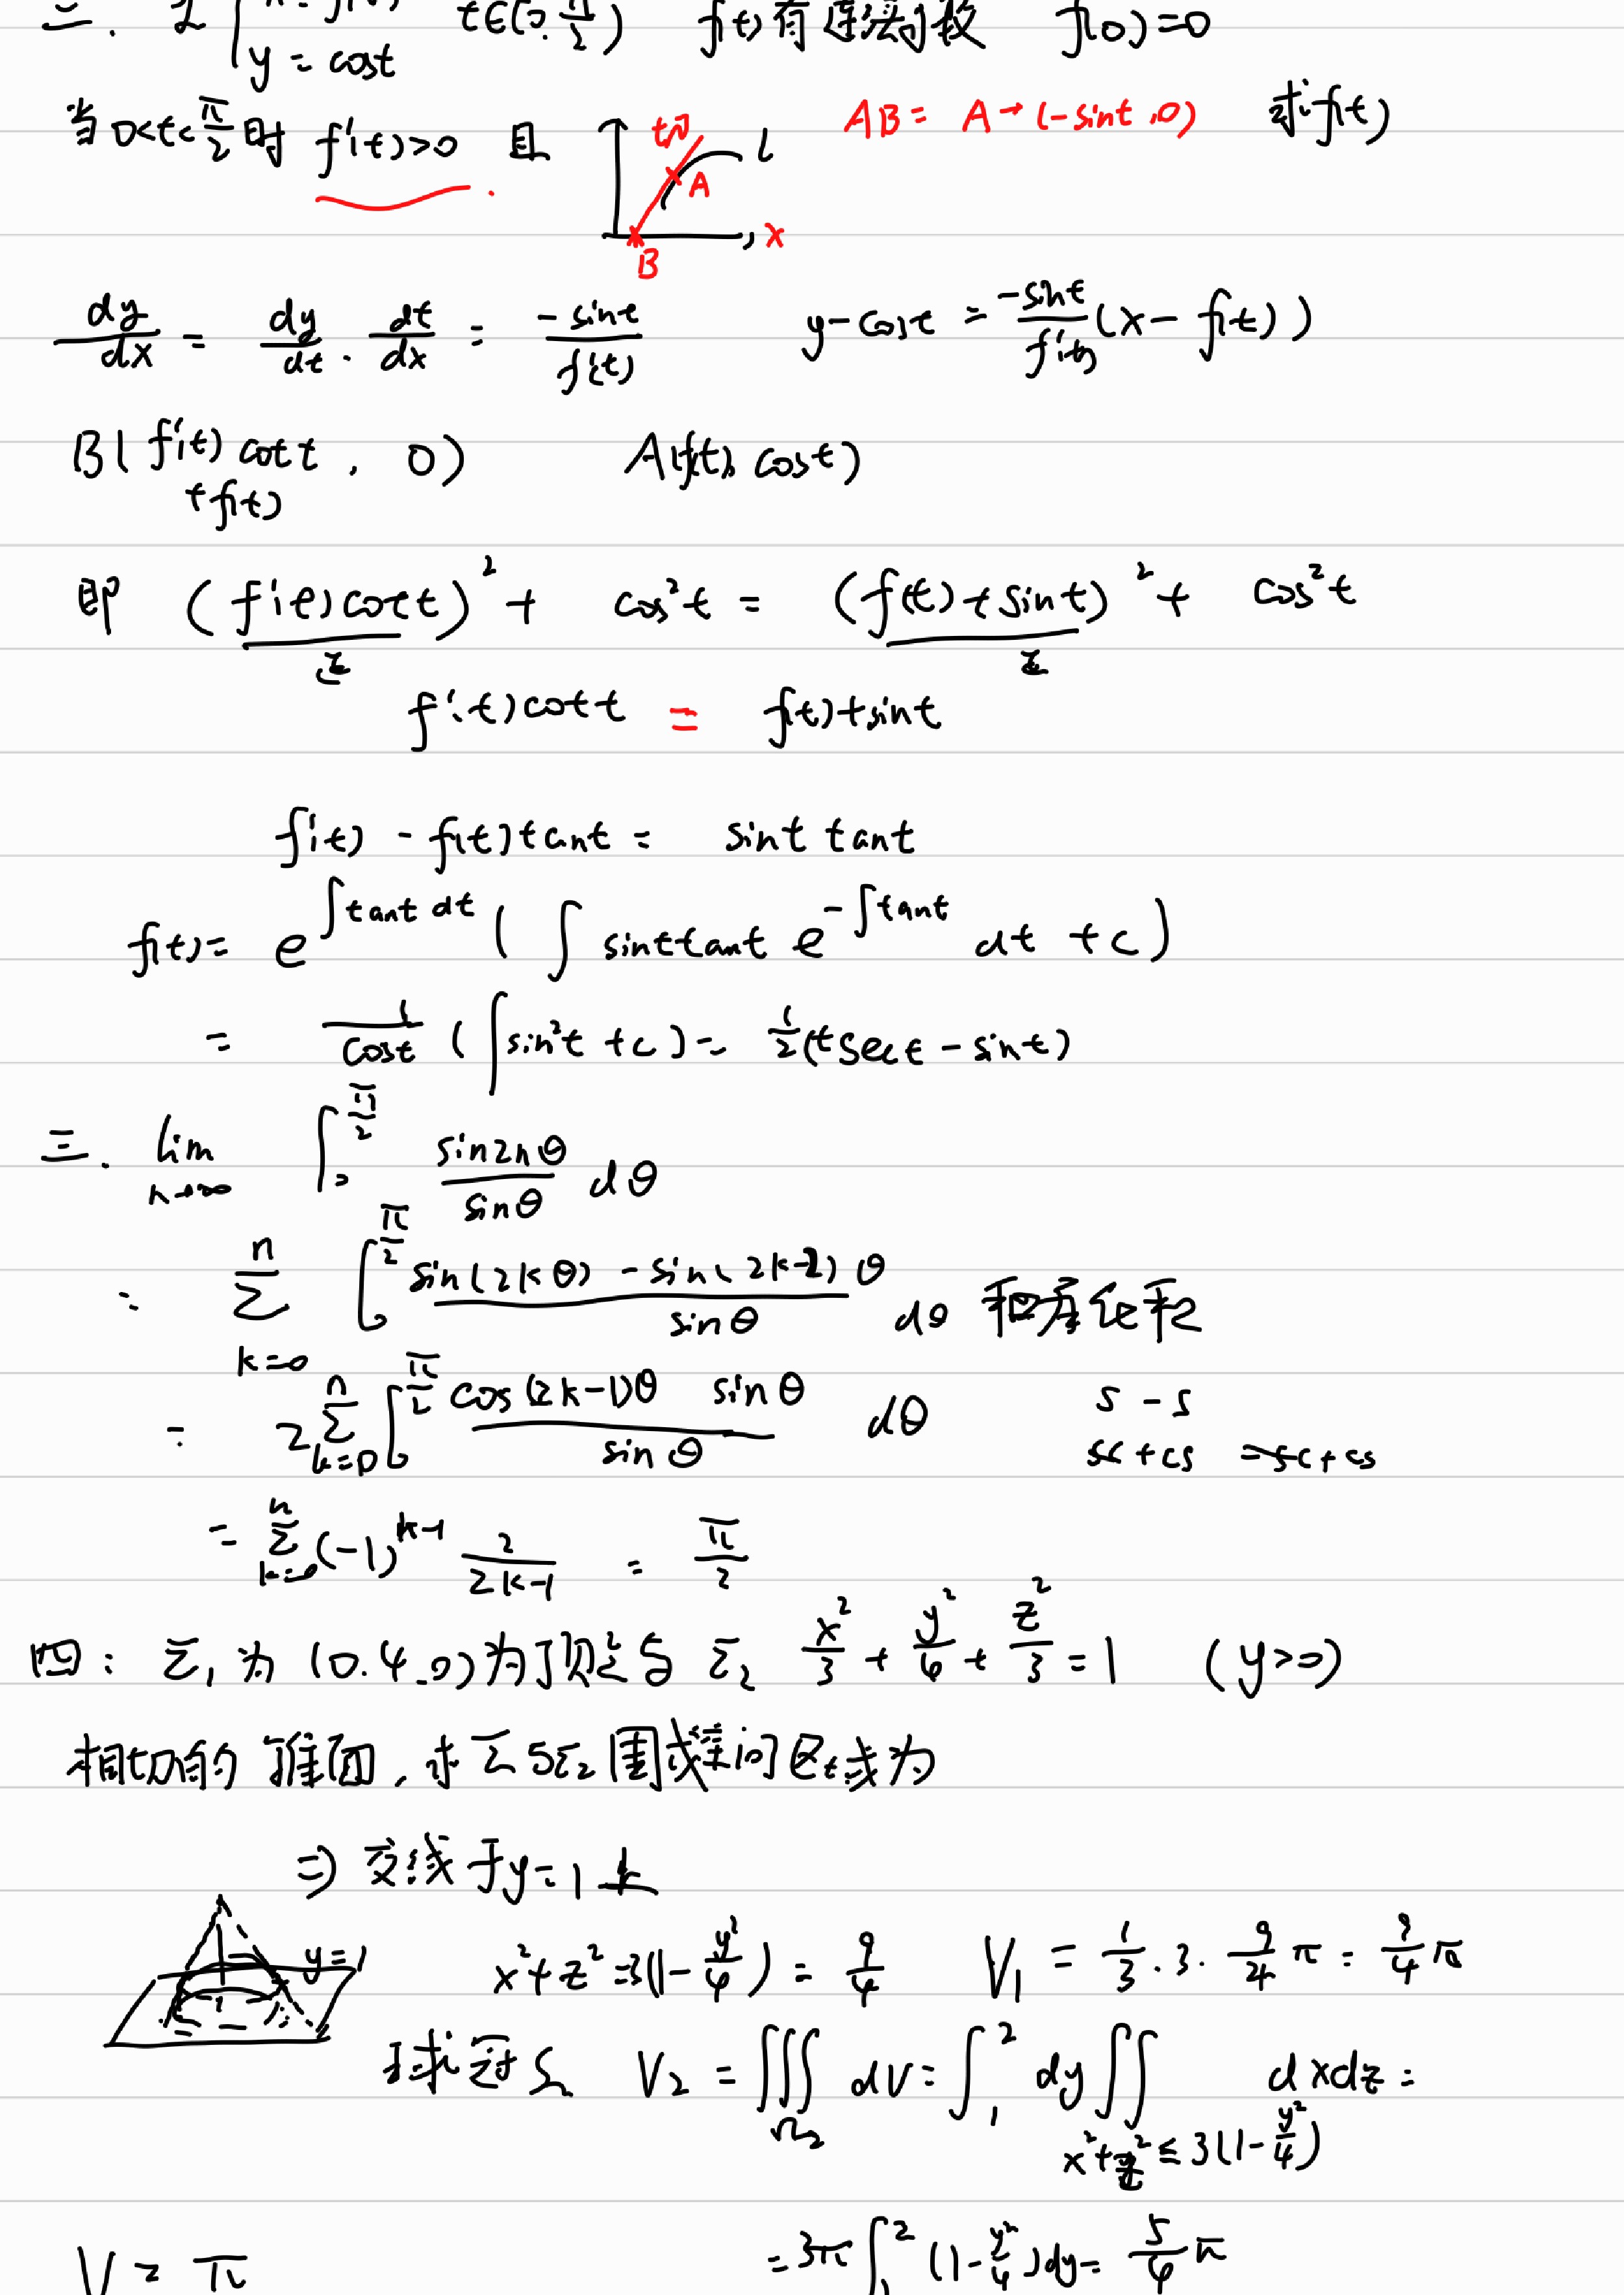 二. L { x = f(t) t∈(0, π/2) f(t)有连续导数 f(0)=0
y = cost
当 0<t<π/2时 f'(t)>0 且 切 A l B x AB = A→(-sint,0) 求f(t)
dy/dx = dy/dt · dt/dx = -sint/f'(t) y-cost = -sint/f'(t) (x-f(t))
B(f'(t)cott+f(t), 0) A(f(t), cost)
即 (f'(t)cott)² + cos²t = (f(t)+sint)² + cos²t
正 正
f'(t)cott = f(t)+sint
f'(t) - f(t)tant = sint tant
f(t) = e^∫tant dt ( ∫ sint tant e^-∫tant dt + c)
= 1/cost ( ∫sin²t + c) = 1/2(tsect - sint)
三. lim n→∞ ∫0^π/2 sin2nθ/sinθ dθ
= Σ k=0^n ∫0^π/2 (sin(2kθ) - sin(2k-2)θ)/sinθ dθ 和差化积
= 2Σ k=0^n ∫0^π/2 cos(2k-1)θ sinθ/sinθ dθ s - s
sc+cs =-sc+cs
= Σ k=0^n (-1)^k-1 2/(2k-1) = π/2
四: Σ₁为(0.4.0)为顶点与Σ₂ x²/3 + y²/4 + z²/3 = 1 (y>0)
相切的锥面, 求Σ₁与Σ₂围成空间区域为
⇒ 交线于y=1上
y=1 x²+z²=3(1-y²/4) = 9/4 V₁ = 1/3 · 3 · 9/4 π = 9/4 π
球冠Ω V₂ = ∭Ω₂ dV = ∫1^2 dy ∬ x²+z²≤3(1-y²/4) dxdz =
V = π = 3π ∫1^2 (1-y²/4)dy = 5/4 π